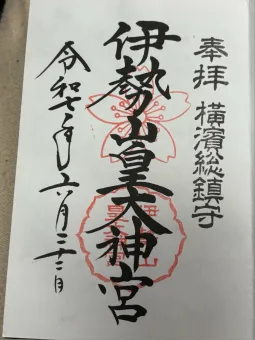 奉拝 横濱総鎮守
伊勢山皇大神宮
令和七年六月二十二日